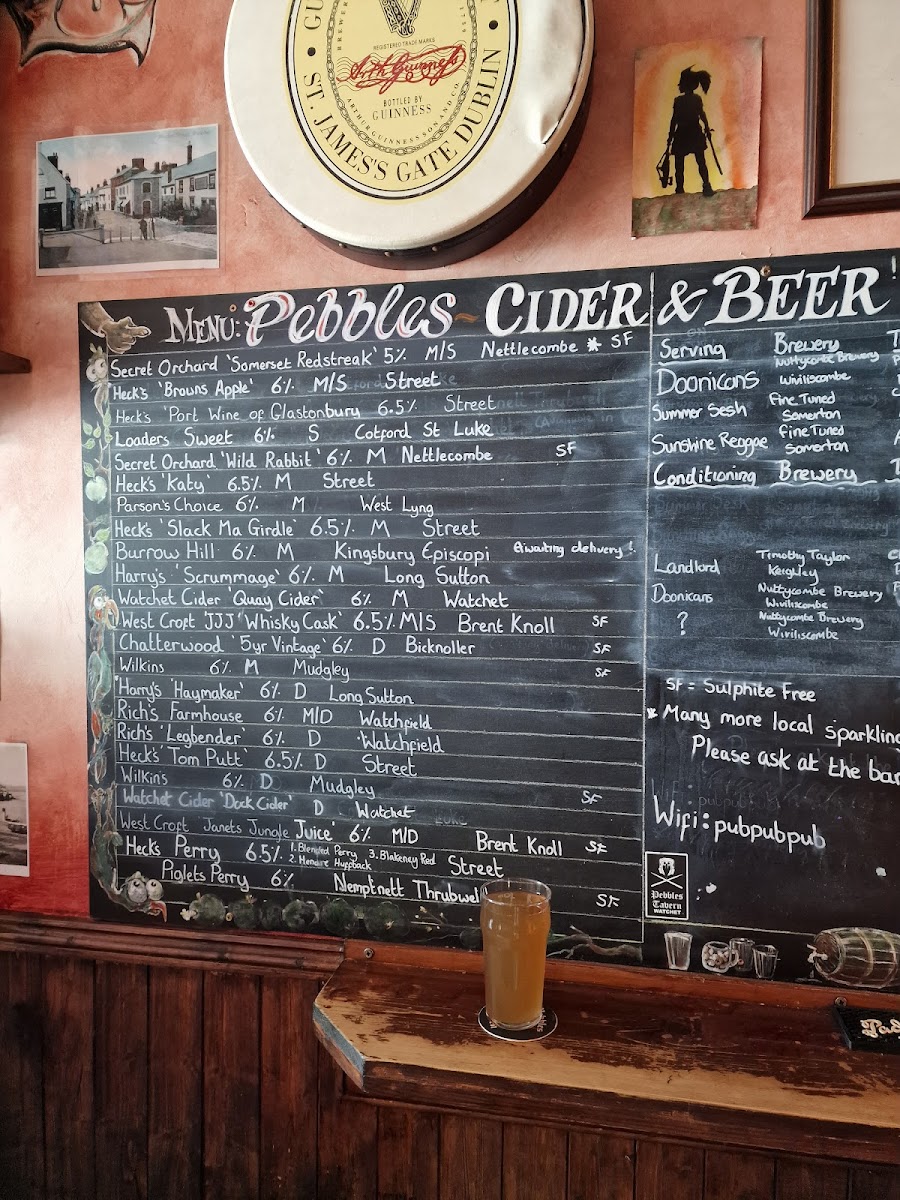 BREWERY
REGISTERED TRADE MARKS
Arth Guinness
BOTTLED BY
GUINNESS
ARTHUR GUINNESS SON AND CO
ST. JAMES'S GATE DUBLIN
MENU: Pebbles ~ CIDER & BEER!
Secret Orchard 'Somerset Redstreak' 5% M/S Nettlecombe * SF
Heck's 'Browns Apple' 6% M/S Street
Heck's 'Port Wine of Glastonbury 6.5% Street
Loaders Sweet 6% S Cotford St Luke
Secret Orchard 'Wild Rabbit' 6% M Nettlecombe SF
Heck's 'Katy' 6.5% M Street
Parson's Choice 6% M West Lyng
Heck's 'Slack Ma Girdle' 6.5% M Street
Burrow Hill 6% M Kingsbury Episcopi Awaiting delivery!
Harry's 'Scrummage' 6% M Long Sutton
Watchet Cider 'Quay Cider' 6% M Watchet
West Croft 'JJJ 'Whisky Cask' 6.5% M|S Brent Knoll SF
Chatterwood '5yr Vintage' 6% D Bicknoller SF
Wilkins 6% M Mudgley SF
Harry's 'Haymaker' 6% D Long Sutton
Rich's Farmhouse 6% M|D Watchfield
Rich's 'Legbender' 6% D Watchfield
Heck's 'Tom Putt' 6.5% D Street
Wilkin's 6% D Mudgley SF
Watchet Cider 'Dock Cider' D Watchet
West Croft 'Janets Jungle Juice' 6% M|D Brent Knoll SF
Heck's Perry 6.5% 1. Blended Perry 2. Hendre Huffback 3. Blakeney Red Street
Piglets Perry 6% Nemptnett Thrubwell SF
Serving Brewery
Doonicans Nuttycombe Brewery
Wiviliscombe
Summer Sesh Fine Tuned
Somerton
Sunshine Reggae Fine Tuned
Somerton
Conditioning Brewery
Landlord Timothy Taylor
Keighley
Doonicans Nuttycombe Brewery
Wiviliscombe
? Nuttycombe Brewery
Wiviliscombe
SF = Sulphite Free
* Many more local sparkling
Please ask at the bar
Wifi: pubpubpub
Pebbles
Tavern
WATCHET